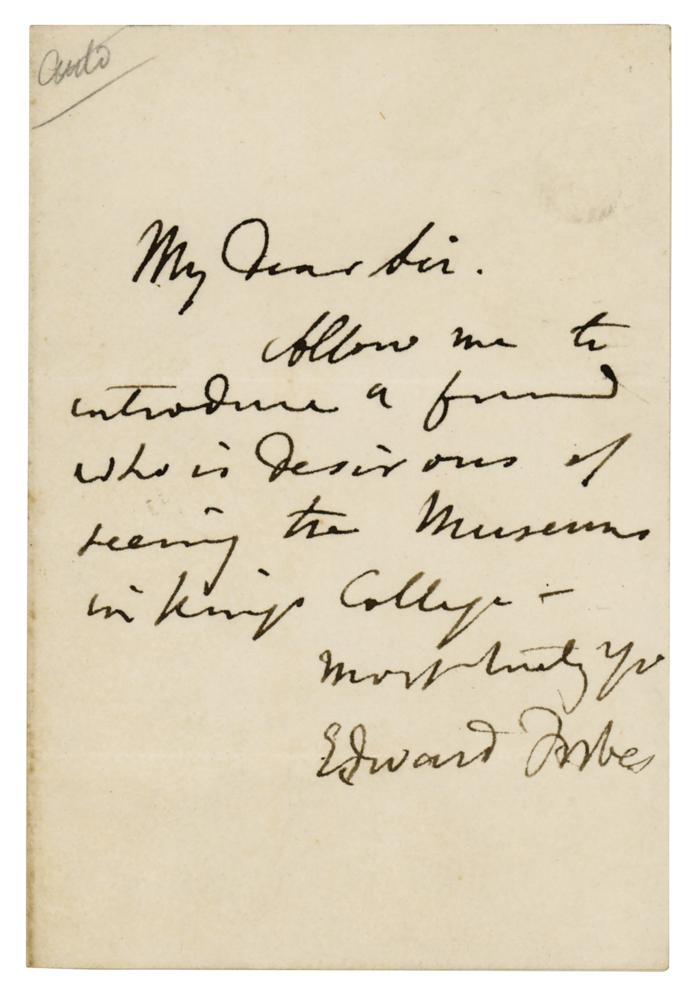 auto
My Dear Sir.
Allow me to
introduce a friend
who is desirous of
seeing the Museums
in Kings College –
Most truly Yrs
Edward Forbes